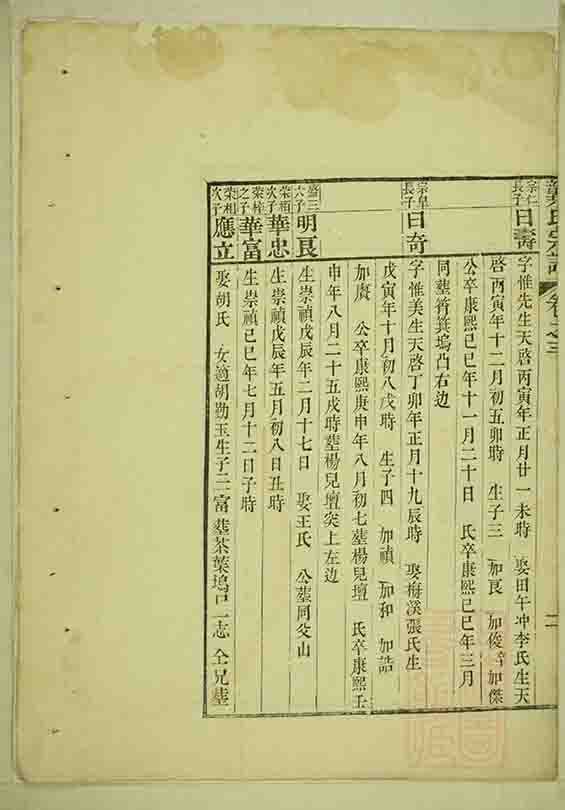 龔氏宗譜 卷之三 二
宗仁長子 曰壽 字惟先生天啓丙寅年正月廿一未時 娶田午冲李氏生天
啓丙寅年十二月初五卯時 生子三 加良 加俊 加傑
公卒康熙己巳年十一月二十日 氏卒康熙己巳年三月
同塟筲箕塢凸右边
宗皐長子 曰奇 字惟美生天啓丁卯年正月十九辰時 娶梅溪張氏生
戊寅年十月初八戌時 生子四 加禎 加和 加誥
加賡 公卒康熙庚申年八月初七塟楊兒壇 氏卒康熙壬
申年八月二十五戌時塟楊兒壇突上左边
盛三六子 明良 生崇禎戊辰年二月十七日 娶王氏 公塟同父山
榮相次子 華忠 生崇禎戊辰年五月初八日丑時
榮梓之子 華富 生崇禎己巳年七月十二日子時
榮相次子 應立 娶胡氏 女適胡勤玉生子二 富 塟茶葉塢口 志 仝兄塟